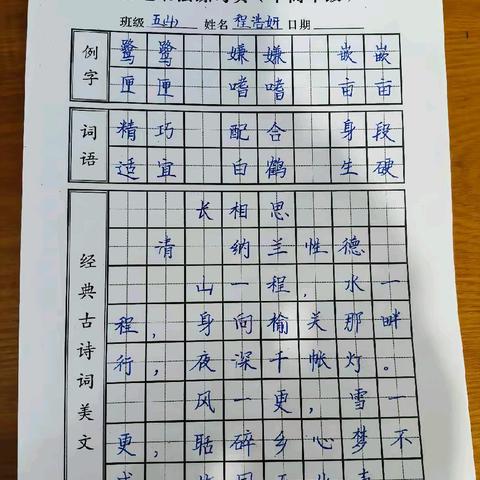 班级 五(4) 姓名 程浩妍 日期
例字
鹭 鹭 嫌 嫌 嵌 嵌
匣 匣 嗜 嗜 亩 亩
词语
精 巧 配 合 身 段
适 宜 白 鹤 生 硬
经典古诗词美文
长 相 思
清 纳 兰 性 德
山 一 程 , 水 一
程 , 身 向 榆 关 那 畔
行 , 夜 深 千 帐 灯 。
风 一 更 , 雪 一
更 , 聒 碎 乡 心 梦 不